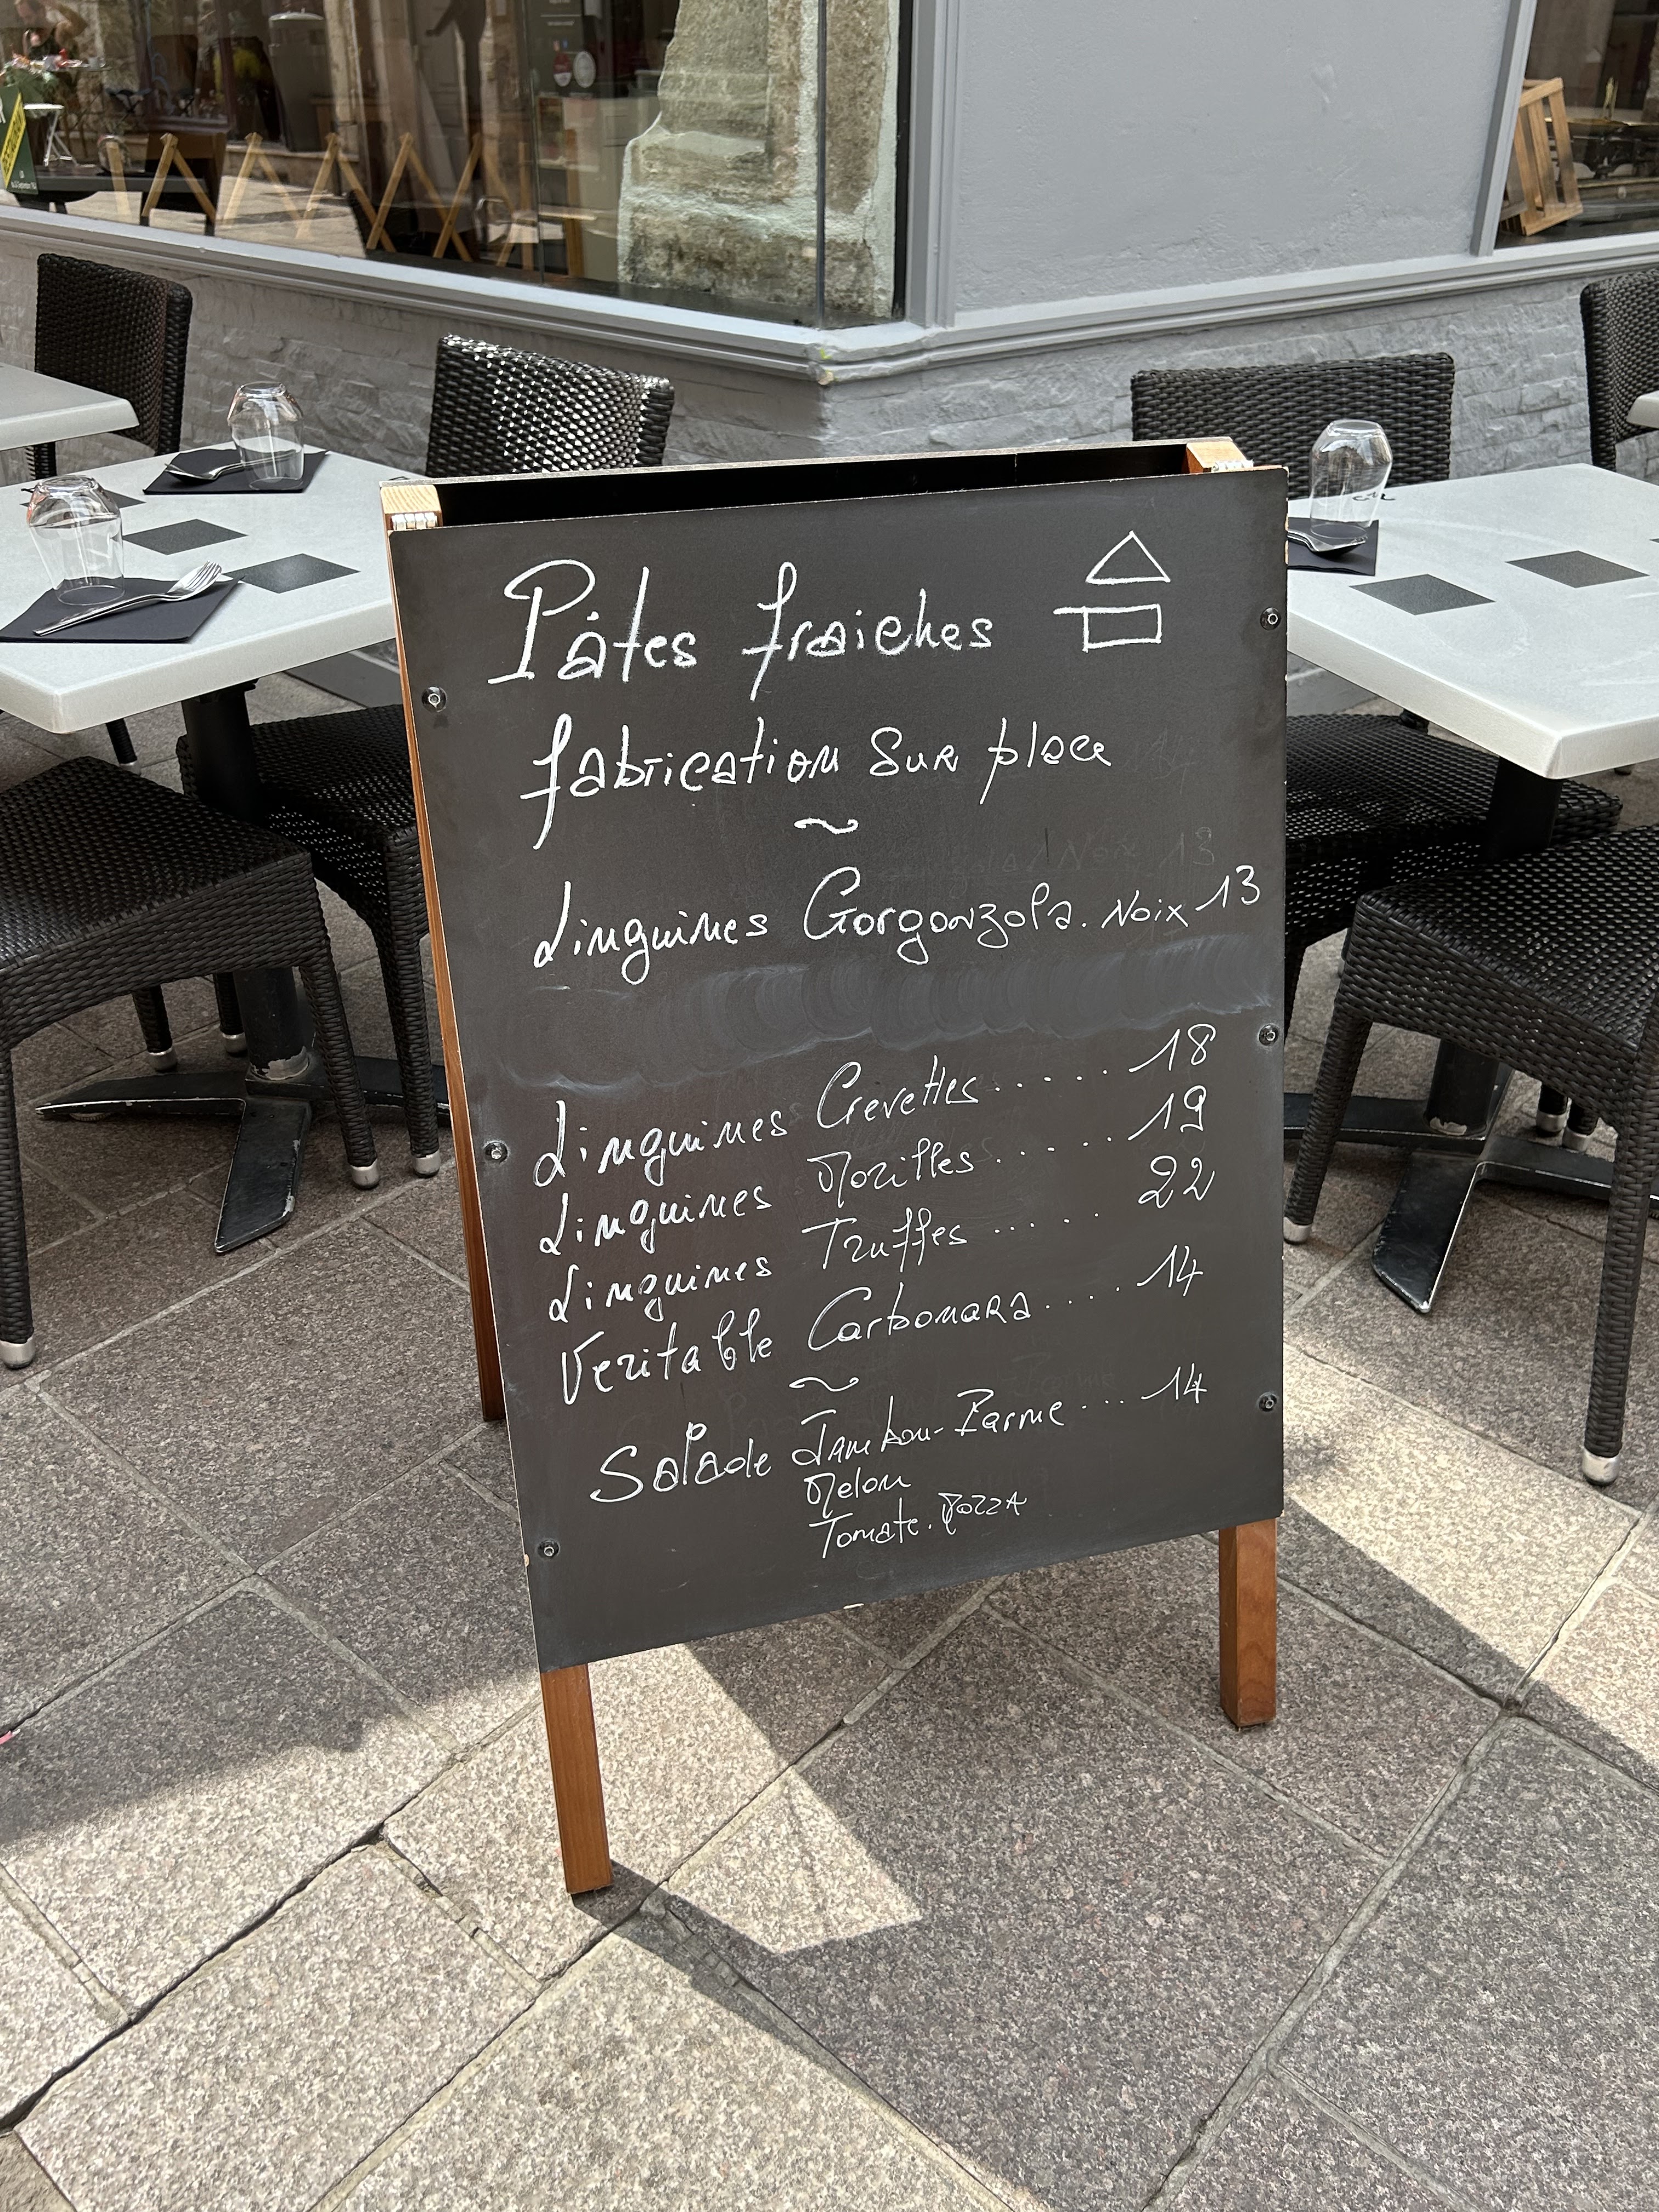 Pâtes fraiches
fabrication sur place
~
Linguines Gorgonzola. Noix 13
Linguines Crevettes...... 18
Linguines Morilles...... 19
Linguines Truffes...... 22
Veritable Carbonara..... 14
~
Salade Jambon-Parme... 14
Melon
Tomate. Mozza